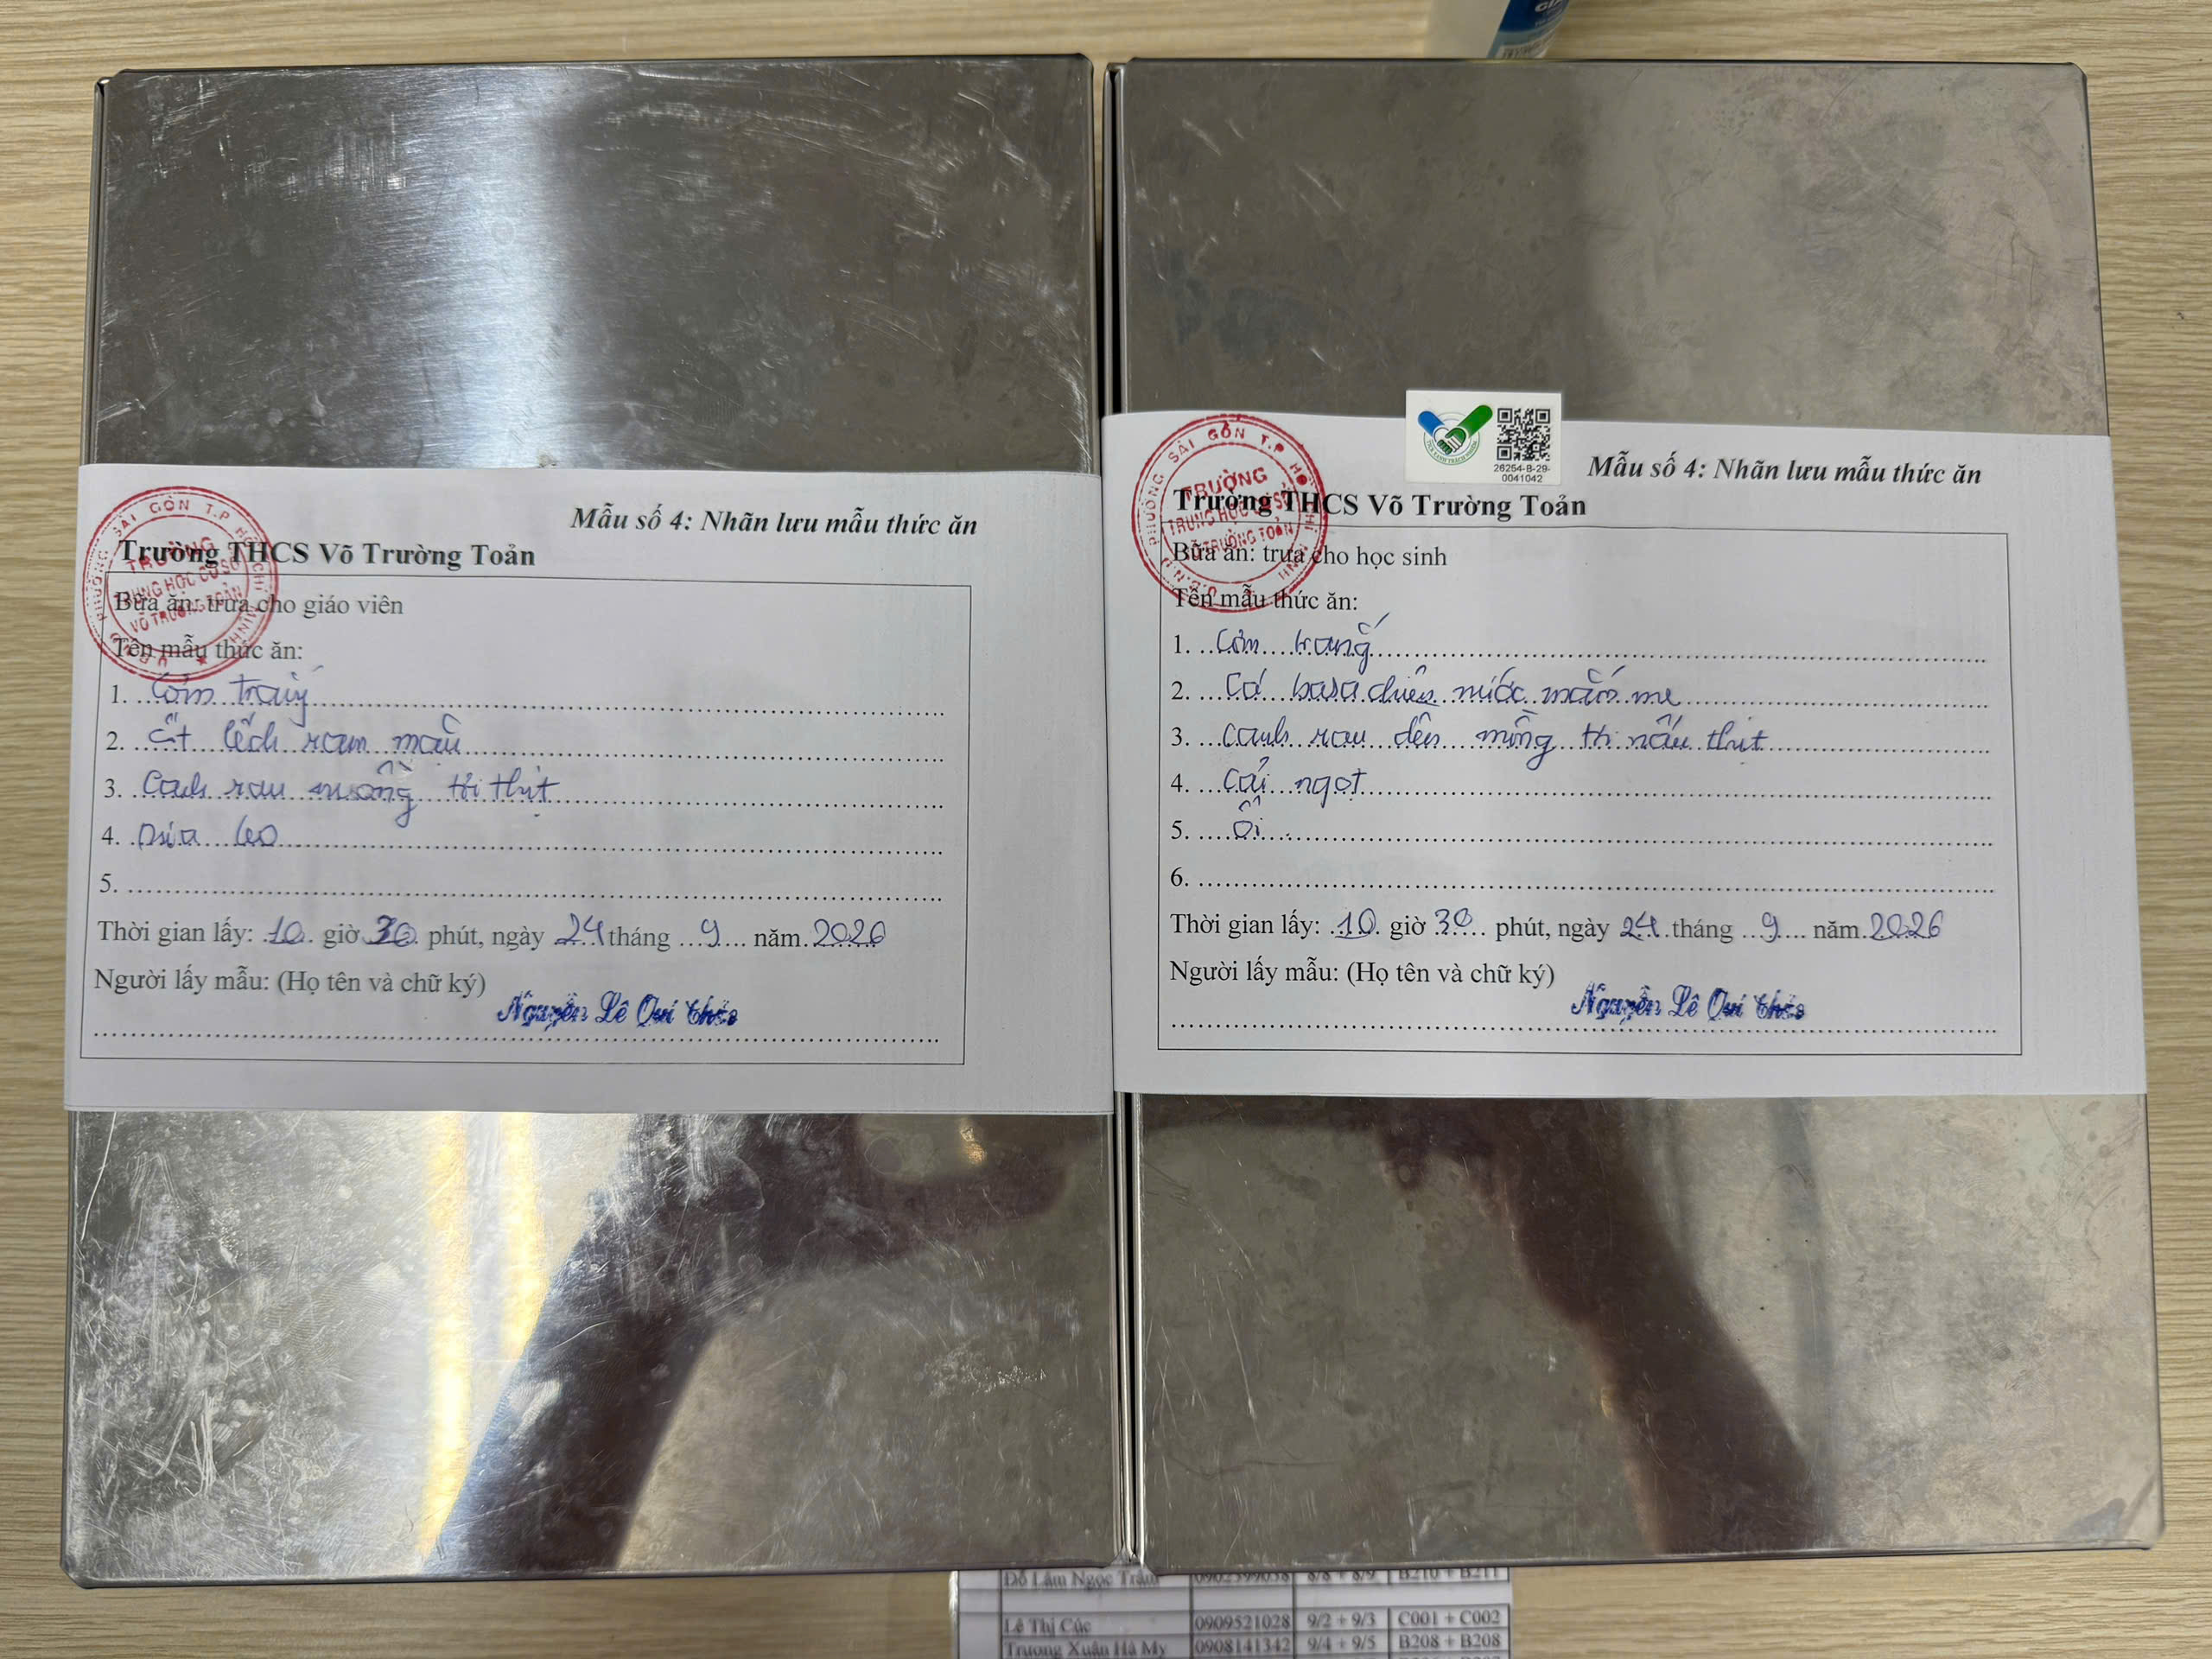 Mẫu số 4: Nhãn lưu mẫu thức ăn
Trường THCS Võ Trường Toản
Bữa ăn: trưa cho giáo viên
Tên mẫu thức ăn:
1. Cơm trắng
2. Cốt lếch ram mặn
3. Canh rau muống tôi thịt
4. Dưa leo
5.
Thời gian lấy: 10 giờ 30 phút, ngày 24 tháng 9 năm 2026
Người lấy mẫu: (Họ tên và chữ ký)
Nguyễn Lê Quí
PHƯỜNG SÀI GÒN T.P HỒ CHÍ MINH
TRƯỜNG
TRUNG HỌC CƠ SỞ
VÕ TRƯỜNG TOẢN
26254-B-29-
0041042
Mẫu số 4: Nhãn lưu mẫu thức ăn
Trường THCS Võ Trường Toản
Bữa ăn: trưa cho học sinh
Tên mẫu thức ăn:
1. Cơm trắng
2. Cá basa chiên nước mắm me
3. Canh rau dền mồng tơi nấu thịt
4. Cải ngọt
5. Ổi
6.
Thời gian lấy: 10 giờ 30 phút, ngày 24 tháng 9 năm 2026
Người lấy mẫu: (Họ tên và chữ ký)
Nguyễn Lê Quí
PHƯỜNG SÀI GÒN T.P HỒ CHÍ MINH
TRƯỜNG
TRUNG HỌC CƠ SỞ
VÕ TRƯỜNG TOẢN
Đỗ Lâm Ngọc Trâm 0902399038 8/8 + 8/9 B210 + B211
Lê Thị Cúc 0909521028 9/2 + 9/3 C001 + C002
Trương Xuân Hà My 0908141342 9/4 + 9/5 B208 + B208